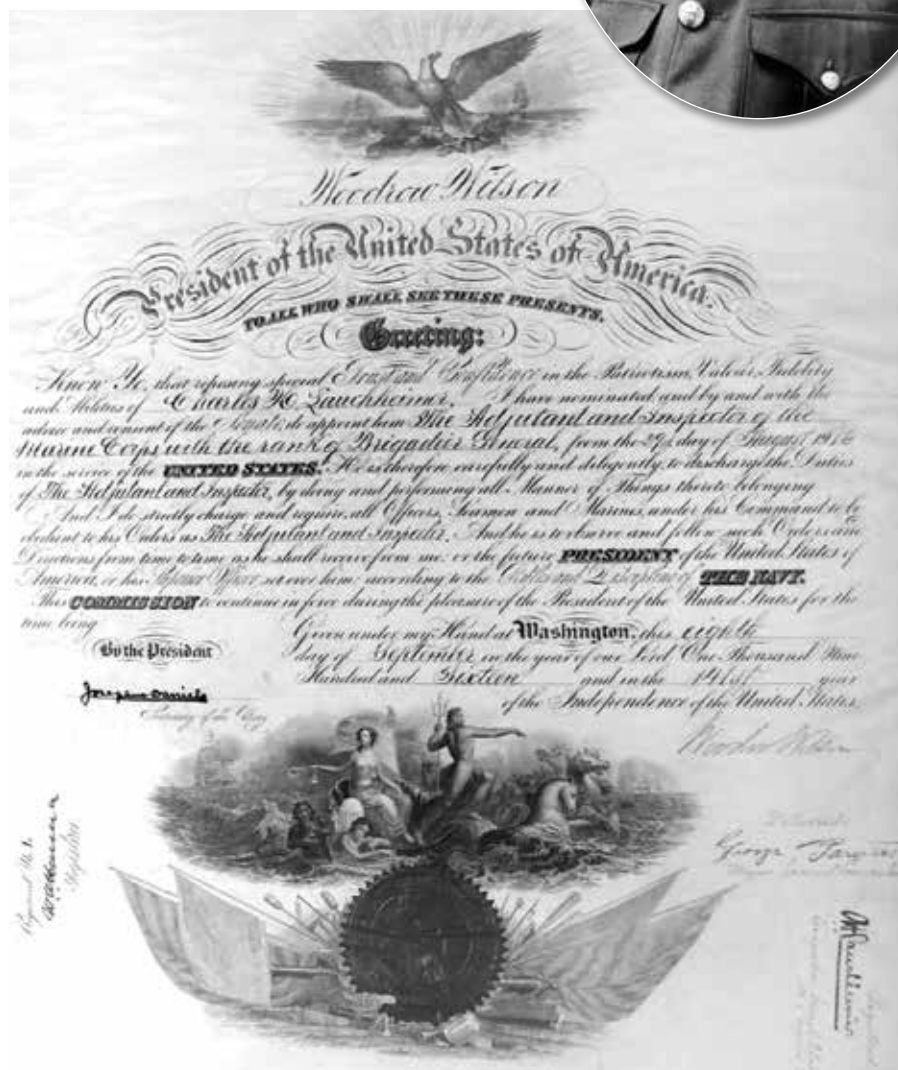 Woodrow Wilson
President of the United States of America.
TO ALL WHO SHALL SEE THESE PRESENTS,
Greeting:
Know Ye, that reposing special Trust and Confidence in the Patriotism, Valour, Fidelity
and Abilities of Charles H. Lauchheimer, I have nominated and by and with the
advice and consent of the Senate, do appoint him The Adjutant and Inspector of the
Marine Corps with the rank of Brigadier General, from the day of August 1916
in the service of the UNITED STATES. He is therefore carefully and diligently to discharge the Duties
of The Adjutant and Inspector, by doing and performing all Manner of Things thereto belonging
And I do strictly charge and require all Officers, Seamen and Marines under his Command to be
obedient to his Orders as The Adjutant and Inspector. And he is to observe and follow such Orders and
Directions from time to time as he shall receive from me or the future PRESIDENT of the United States of
America, or his Superior Officer set over him, according to the Rules and Discipline of THE NAVY.
This COMMISSION to continue in force during the pleasure of the President of the United States for the
time being
Given under my Hand at Washington, this eighth
By the President
day of September in the year of our Lord One Thousand Nine
Hundred and Sixteen and in the 141st year
Josephus Daniels
of the Independence of the United States.
Secretary of the Navy
Woodrow Wilson
George